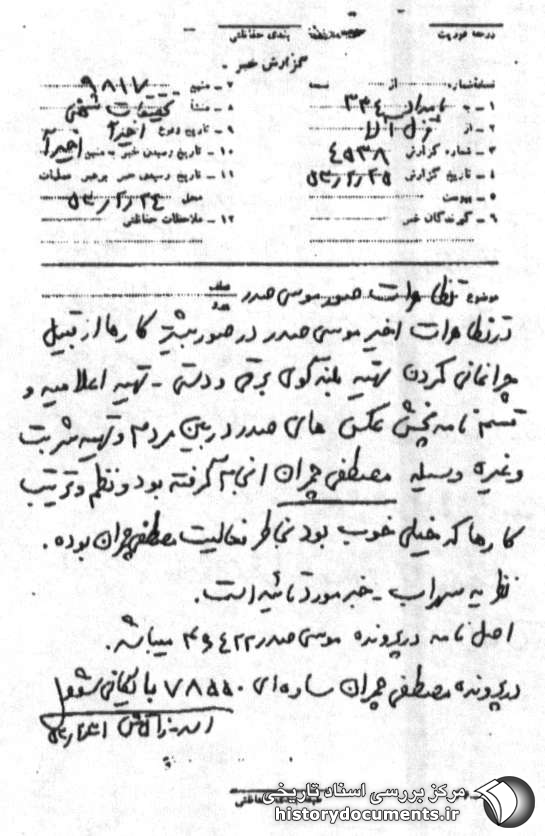 درجه فوریت
طبقه‌بندی حفاظتی
گزارش خبر
نسخه شماره از نسخه
۱ - به نامدان ۳۳۴
۲ - از
۳ - شماره گزارش ۴۵۳۸
۴ - تاریخ گزارش
۵ - پیوست
۶ - گیرندگان خبر
۷ - منبع ۹۸۱۷
۸ - منشأ تحقیقات شخصی
۹ - تاریخ وقوع اخیراً
۱۰ - تاریخ رسیدن خبر به منبع اخیراً
۱۱ - تاریخ رسیدن خبر برهبر عملیات
محل
۱۲ - ملاحظات حفاظتی
موضوع تظاهرات صور موسی صدر
در تظاهرات اخیر موسی صدر در صور بیشتر کارها از قبیل
چراغانی کردن تهیه بلندگوی برقی و دستی - تهیه اعلامیه و
قسم نامه پخش عکس های صدر در بین مردم و تهیه شربت
و غیره وسیله مصطفی چمران انجام گرفته بود و نظم و ترتیب
کارها که خیلی خوب بود بخاطر فعالیت مصطفی چمران بوده.
نظریه سهراب - خبر مورد تائید است.
اصل نامه در پرونده موسی صدر ۴۹۴۲۲ میباشد.
در پرونده مصطفی چمران ساوه‌ای ۷۸۵۵۰ بایگانی شود
مرکز بررسی اسناد تاریخی
historydocuments.ir